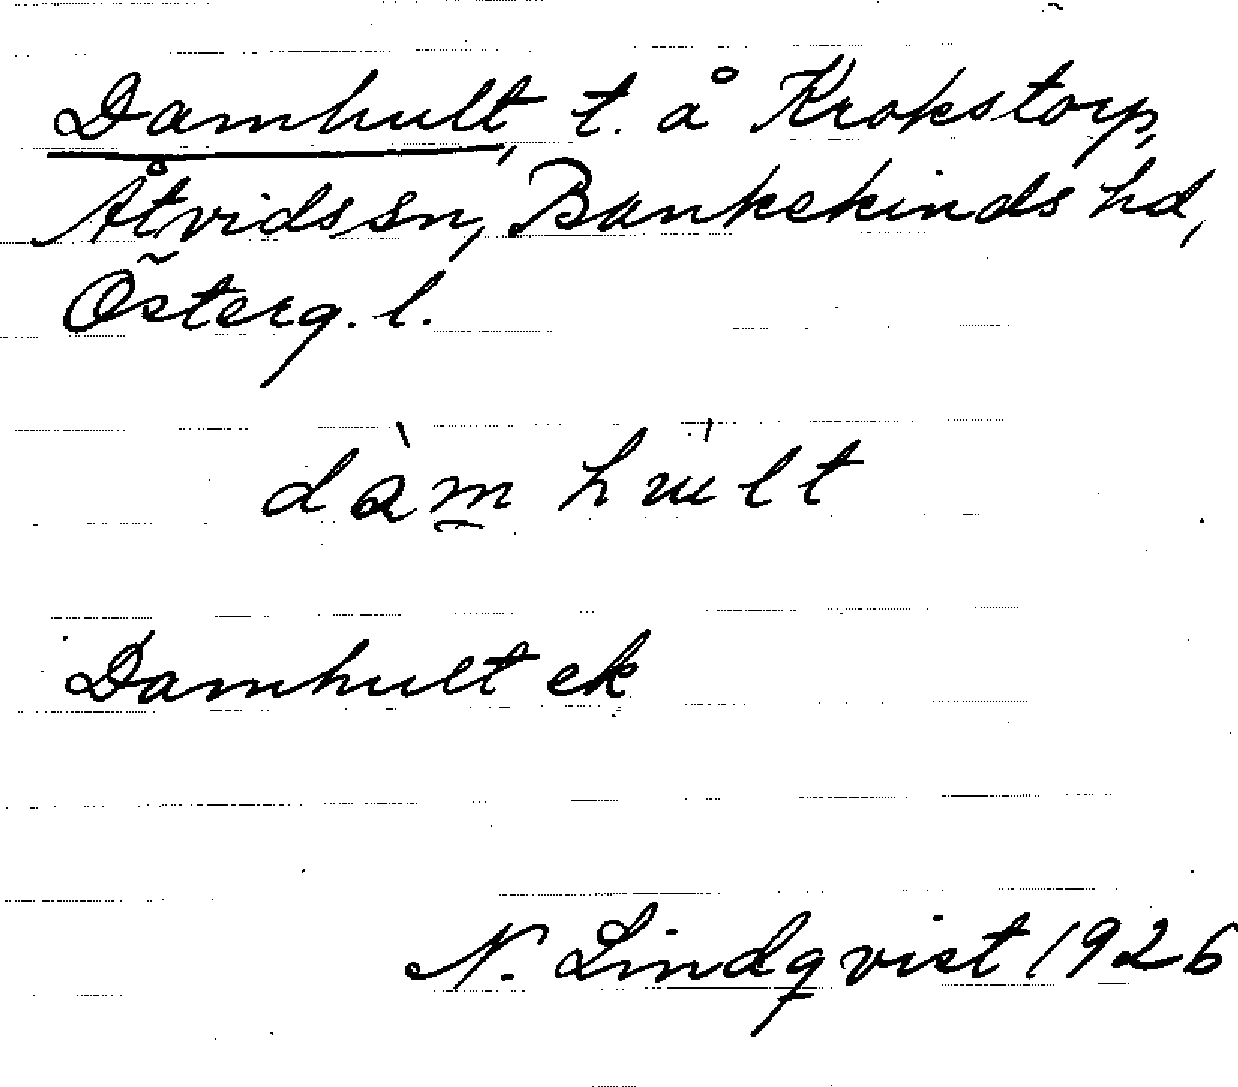 Damhult, t. å Krokstorp,
Åtvids sn, Bankekinds hd,
Österg. l.
dàm hult
Damhult ek
N. Lindqvist 1926